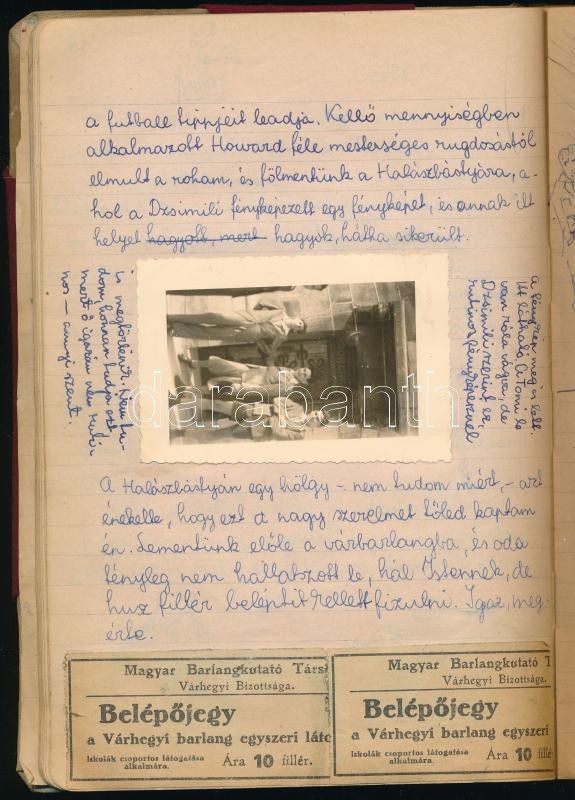 a futball tippjeit leadja. Kellő mennyiségben
alkalmazott Howard féle mesterséges rugdosástól
elmult a roham, és fölmentünk a Halászbástyára, a-
hol a Dzsimili fényképezett egy fényképet, és annak itt
helyet hagyott, mert hagyok, hátha sikerült.
A fénykép meg is lett.
Itt látható a Tomi le
van róla vágva, de
Dzsimili szerint ez
rutinos fényképésznél
is megtörténik. Nem tu-
dom, honnan tudja ezt
mert ő igazán nem rutin
nos – annyi szent.
darabanth
A Halászbástyán egy hölgy – nem tudom miért, – azt
énekelte, hogy ezt a nagy szerelmet tőled kaptam
én. Lementünk előle a várbarlangba, és oda
tényleg nem hallatszott le, hál Istennek, de
husz fillér beléptit kellett fizutni. Igaz, meg-
érte.
Magyar Barlangkutató Társ
Várhegyi Bizottsága.
Belépőjegy
a Várhegyi barlang egyszeri láto
Iskolák csoportos látogatása
alkalmára.
Ára 10 fillér.
Magyar Barlangkutató T
Várhegyi Bizottsága.
Belépőjegy
a Várhegyi barlang egyszeri
Iskolák csoportos látogatása
alkalmára.
Ára 10 fillér